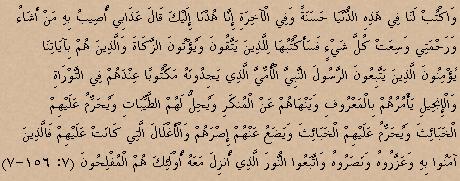 وَاكْتُبْ لَنَا فِي هَذِهِ الدُّنْيَا حَسَنَةً وَفِي الْآخِرَةِ إِنَّا هُدْنَا إِلَيْكَ قَالَ عَذَابِي أُصِيبُ بِهِ مَنْ أَشَاءُ
وَرَحْمَتِي وَسِعَتْ كُلَّ شَيْءٍ فَسَأَكْتُبُهَا لِلَّذِينَ يَتَّقُونَ وَيُؤْتُونَ الزَّكَاةَ وَالَّذِينَ هُمْ بِآيَاتِنَا
يُؤْمِنُونَ الَّذِينَ يَتَّبِعُونَ الرَّسُولَ النَّبِيَّ الْأُمِّيَّ الَّذِي يَجِدُونَهُ مَكْتُوبًا عِنْدَهُمْ فِي التَّوْرَاةِ
وَالْإِنْجِيلِ يَأْمُرُهُمْ بِالْمَعْرُوفِ وَيَنْهَاهُمْ عَنْ الْمُنكَرِ وَيُحِلُّ لَهُمْ الطَّيِّبَاتِ وَيُحَرِّمُ عَلَيْهِمْ
الْخَبَائِثَ وَيُحَرِّمُ عَلَيْهِمْ الْخَبَائِثَ وَيَضَعُ عَنْهُمْ إِصْرَهُمْ وَالْأَغْلَالَ الَّتِي كَانَتْ عَلَيْهِمْ فَالَّذِينَ
آمَنُوا بِهِ وَعَزَّرُوهُ وَنَصَرُوهُ وَاتَّبَعُوا النُّورَ الَّذِي أُنزِلَ مَعَهُ أُوْلَئِكَ هُمْ الْمُفْلِحُونَ (٧: ١٥٦-٧)